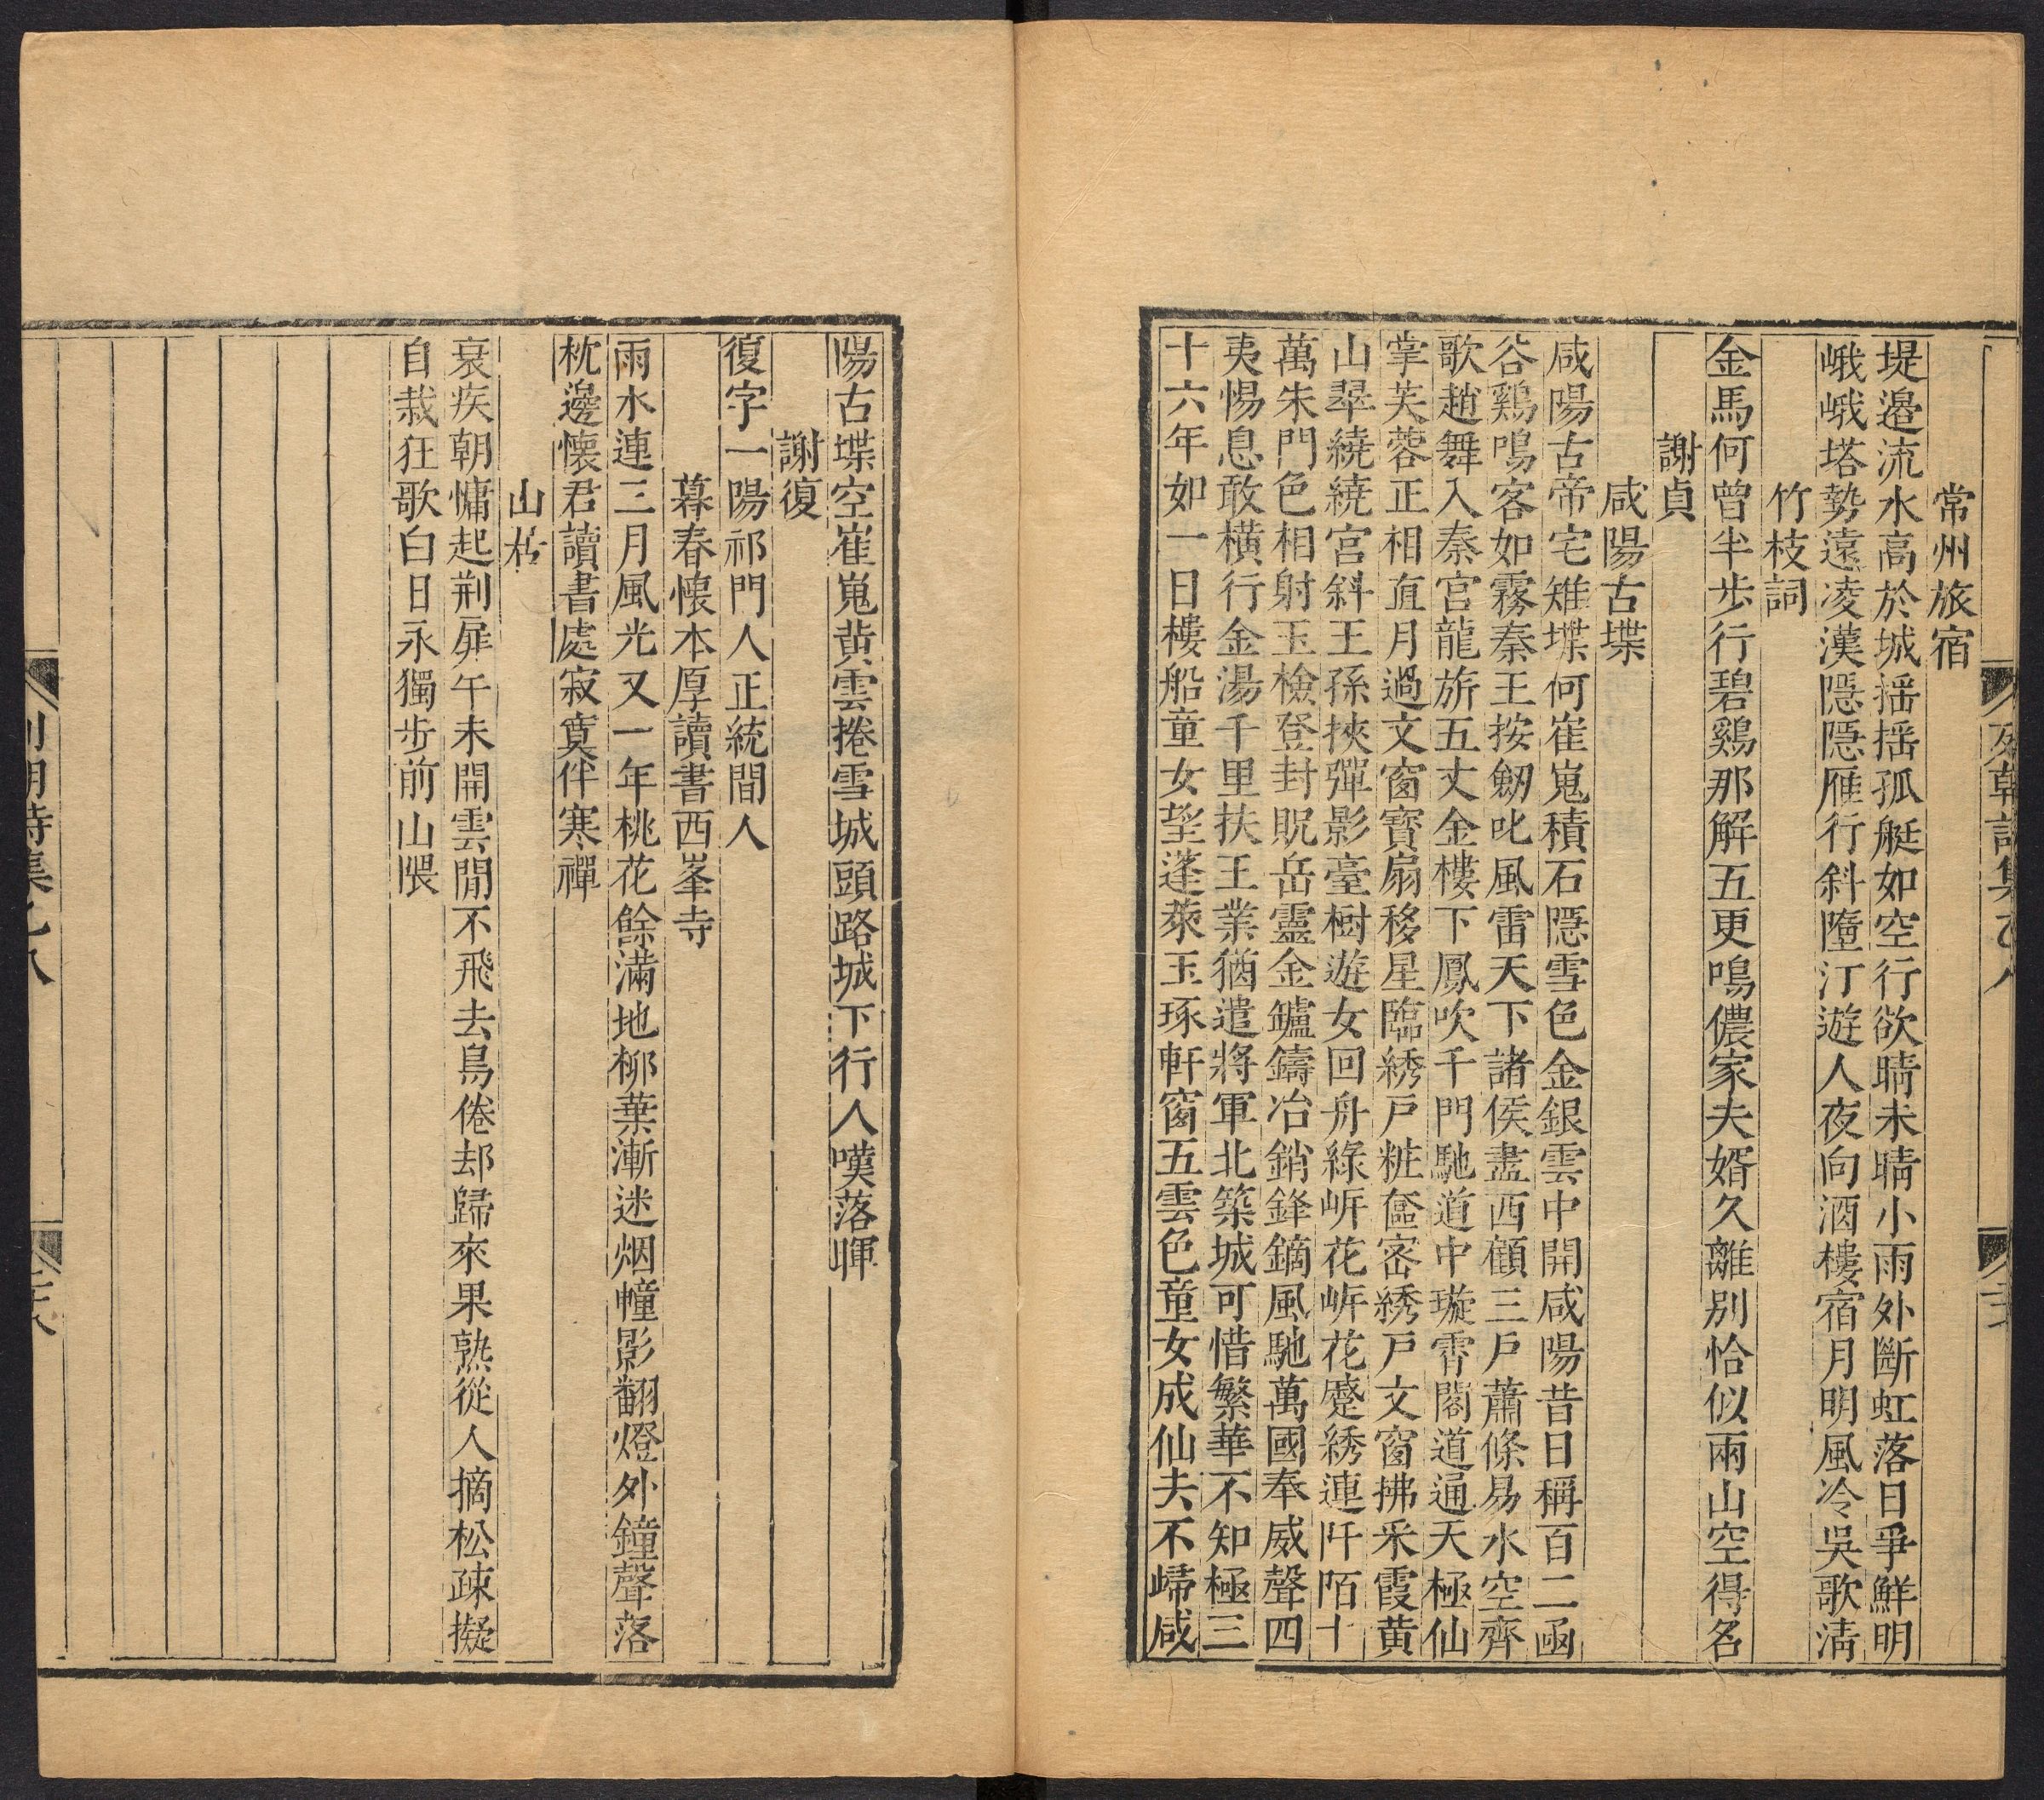 常州旅宿
堤邉流水高於城揺揺孤艇如空行欲晴未晴小雨外斷虹落日爭鮮明
峨峨塔勢遠凌漢隠隠雁行斜墮汀遊人夜向酒樓宿月明風冷吳歌清
竹枝詞
金馬何曾半歩行碧鷄那解五更鳴儂家夫婿久離别恰似兩山空得名
謝貞
咸陽古堞
咸陽古帝宅雉堞何崔嵬積石隠雪色金銀雲中開咸陽昔日稱百二函
谷鷄鳴客如霧秦王按劒叱風雷天下諸侯盡西顧三戸蕭條易水空齊
歌趙舞入秦宮龍旂五丈金樓下鳳吹千門馳道中璇霄閣道通天極仙
掌芙蓉正相直月過文窗寳扇移星臨綉戸粧奩宻綉戸文窗拂采霞黄
山翠繞繞宮斜王孫挾彈影臺樹遊女回舟綠㟁花㟁花蹙綉連阡陌十
萬朱門色相射玉檢登封貺岳靈金鑪鑄冶銷鋒鏑風馳萬國奉威聲四
夷惕息敢横行金湯千里扶王業猶遣將軍北築城可惜繁華不知極三
十六年如一日樓船童女望蓬萊玉琢軒窗五雲色童女成仙去不歸咸
陽古堞空崔嵬黄雲捲雪城頭路城下行人嘆落暉
謝復
復字一陽祁門人正統間人
暮春懐本厚讀書西峯寺
雨水連三月風光又一年桃花餘滿地柳葉漸迷烟幢影翻燈外鐘聲落
枕邊懐君讀書處寂寞伴寒禪
山村
衰疾朝慵起荆扉午未開雲閒不飛去鳥倦却歸來果熟從人摘松疎擬
自栽狂歌白日永獨歩前山隈
列朝詩集乙八